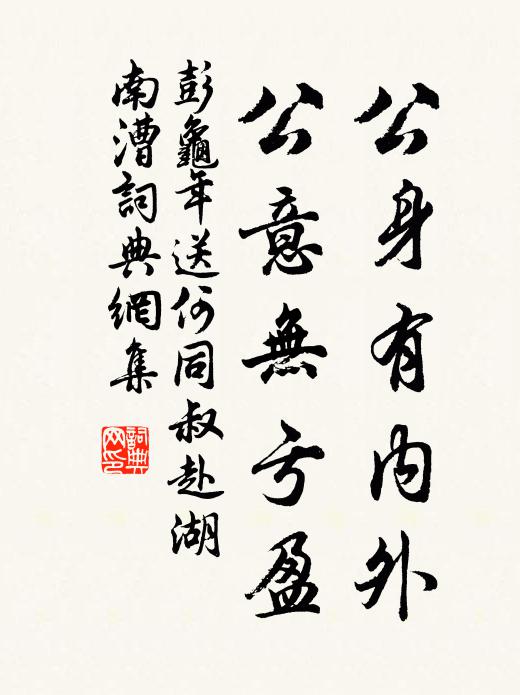 公身有内外
公意無亏盈
彭龜年送何同叔赴湖
南漕詞典網集
詞典網印